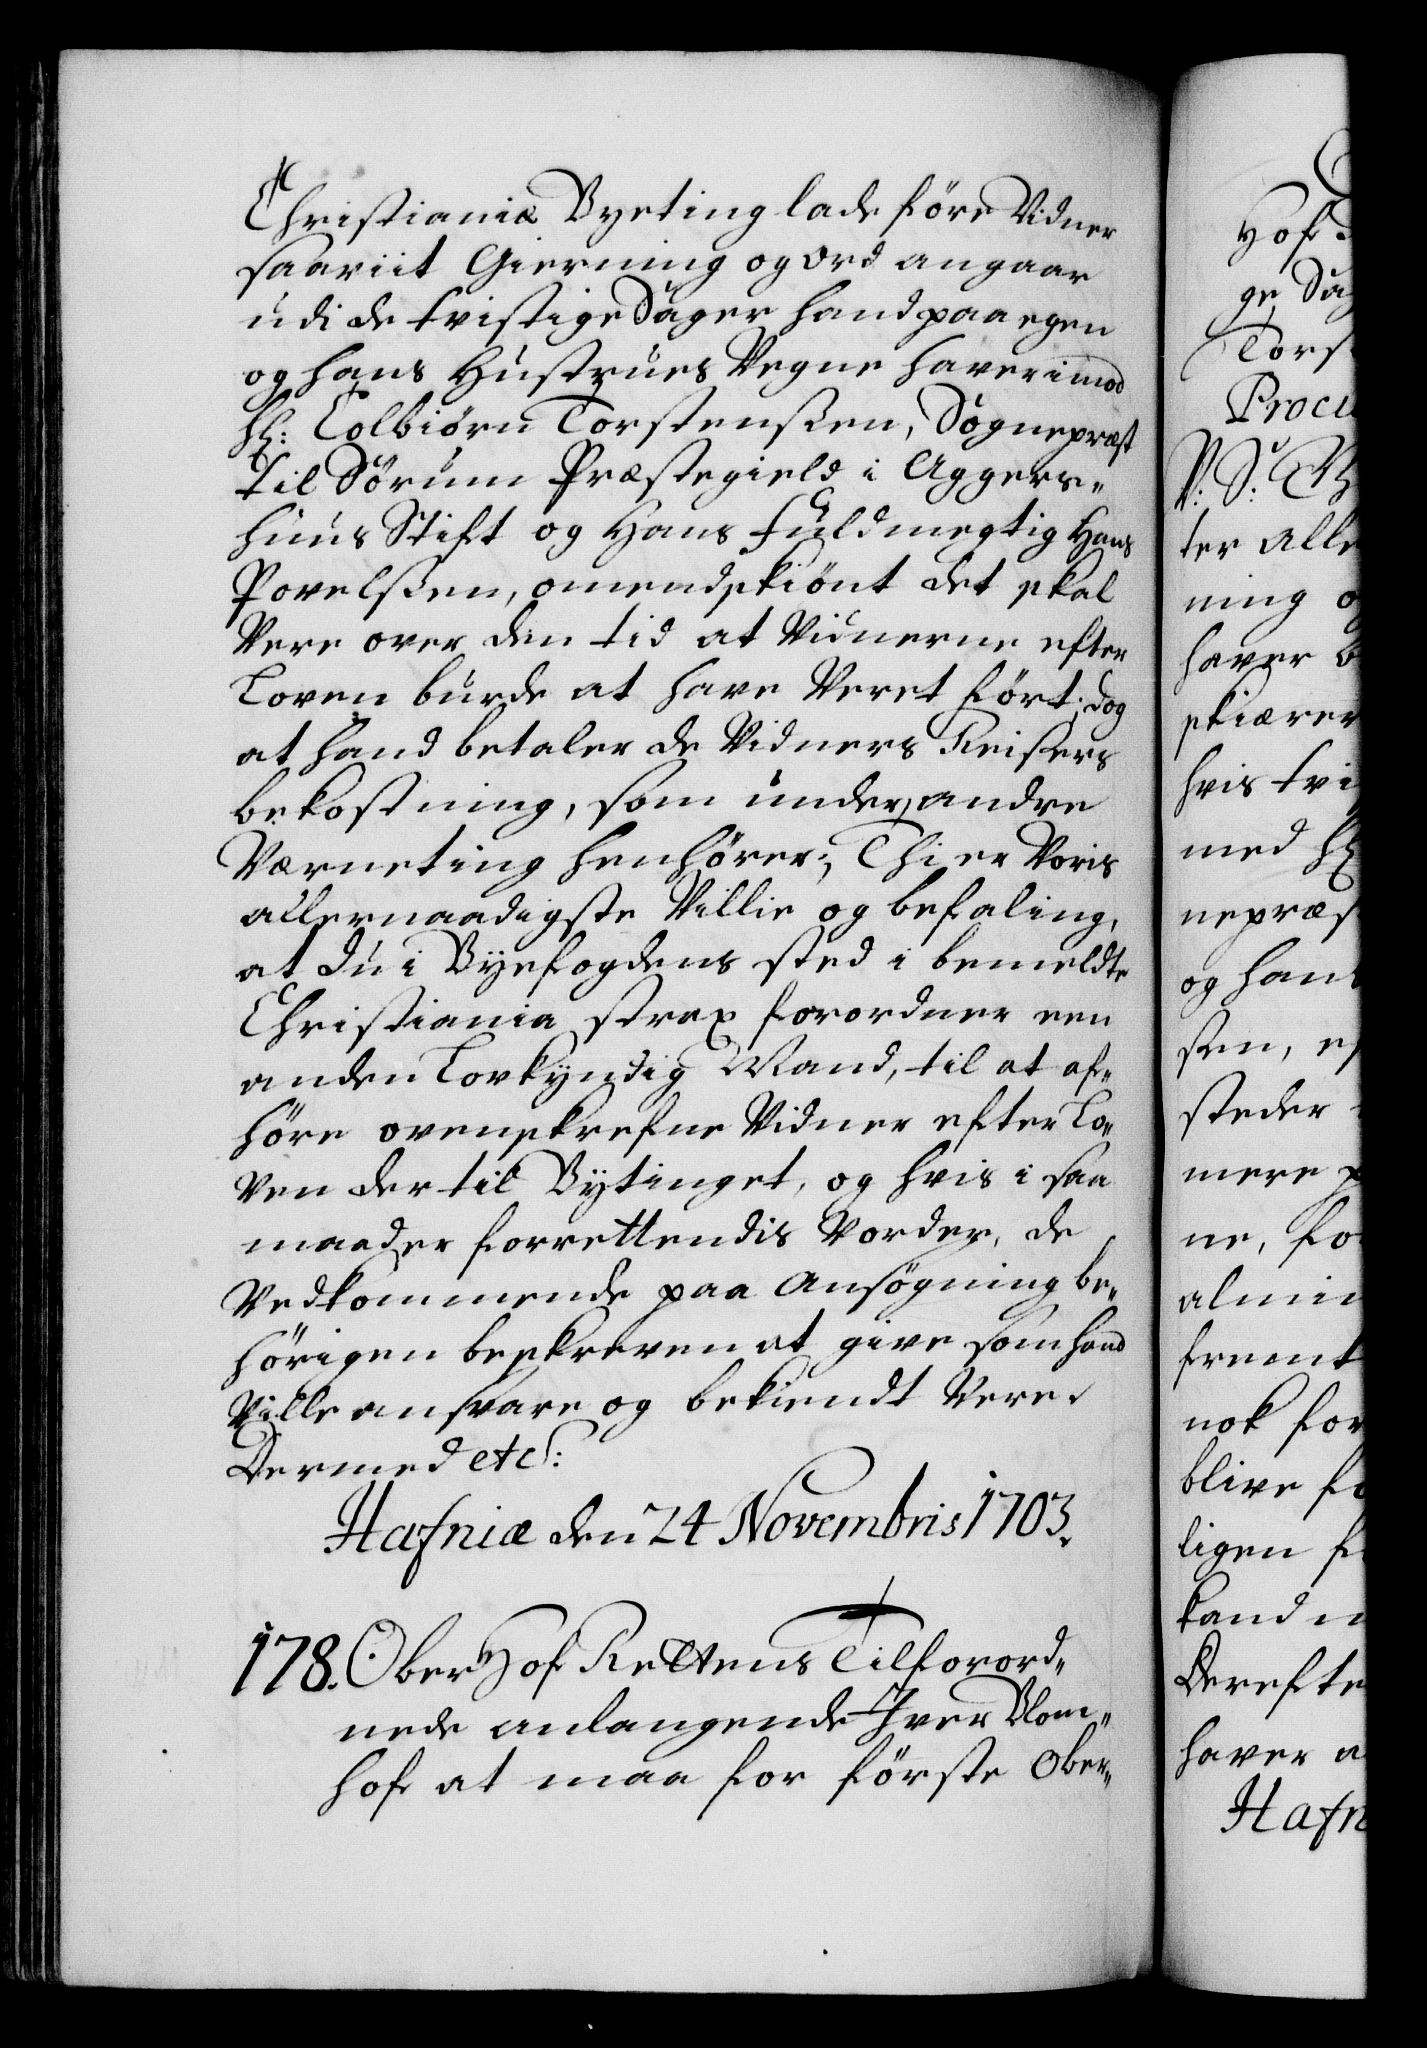 Christianiæ Byeting lade före Vidner
saaviit Gierning og ord angaar
udi de tvistige Sager hand paa egen
og hans Hustrues Vegne haver imod
Hr: Colbiørn Torstenssen, Sognepræst
til Sörum Præstegield i Aggers„
huus Stift og Hans Fuldmegtig Hans
Povelssen, omendskiönt det skal
Vere over den tid at Vidnerne efter
Loven burde at have Veret fört; dog
at hand betaler de Vidners Reisers
bekostning, som under andre
Værneting henhörer; Thi er Voris
allernaadigste Villie og befaling,
at du i Byefogdens sted i bemeldte
Christiania strax forordner een
anden Lovkyndig Mand, til at af„
höre ovenskrefne Vidner efter Lo„
ven der til Bytinget, og hvis i saa
maader forrettendis Vorder, de
Vedkommende paa Ansögning be„
hörigen beskreven at give som hand
Ville ansvare og bekiendt Vere.
Dermed etc:
Hafniæ den 24 Novembris 1703.
178. Ober Hof Rettens Tilforord„
nede anlangende Iver Blom„
hof at maa for förste Ober„
Hof
ge Sag
Tors
Procu
P: S: 
ter Alle
ning o
haver b
skiærer
hvis tvi
med Hr
nepræs
og hans
sen, ef
steder
mere p
ne, for
almin
fremt
nok for
blive fo
ligen f
kand n
Derefte
haver a
Hafn